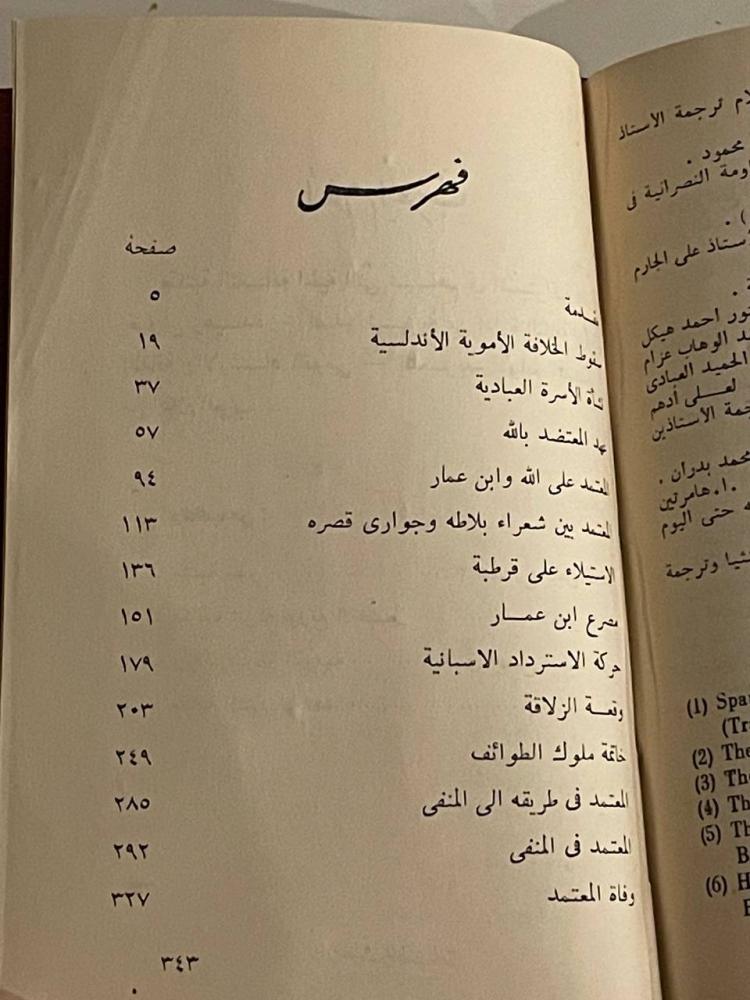 فهرس
صفحة
مقدمة ٥
سقوط الخلافة الأموية الأندلسية ١٩
نشأة الأسرة العبادية ٣٧
عهد المعتضد بالله ٥٧
المعتمد على الله وابن عمار ٩٤
المعتمد بين شعراء بلاطه وجوارى قصره ١١٣
الاستيلاء على قرطبة ١٣٦
مصرع ابن عمـار ١٥١
حركة الاسترداد الاسبانية ١٧٩
وقعـة الزلاقة ٢٠٣
خاتمة ملوك الطوائف ٢٤٩
المعتمد فى طريقه الى المنفى ٢٨٥
المعتمد فى المنفى ٢٩٢
وفاة المعتمد ٣٢٧
٣٤٣
ترجمة الاستاذ
محمود .
النصرانية فى
على الجارم
احمد هيكل
الوهاب عزام
الحميد العبادى
لعـلى أدهم
الأستاذين
محمد بدران .
.ا. هامرتين
حتى اليوم
وترجمة
(1) Spa
(Tr
(2) The
(3) Th
(4) Th
(5) Th
B
(6) H